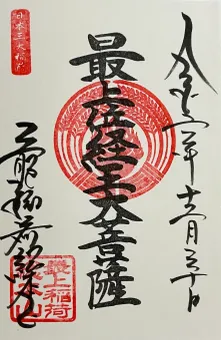 年十二月三十日
最上位経王大菩薩
日本三大稲荷
最上稲荷総本山
最上稲荷山